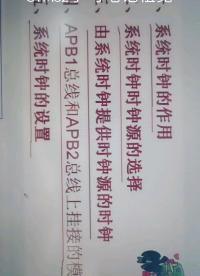 系统时钟的作用
系统时钟时钟源的选择
由系统时钟提供时钟源的时钟
APB1总线和APB2总线上挂接的模
系统时钟的设置